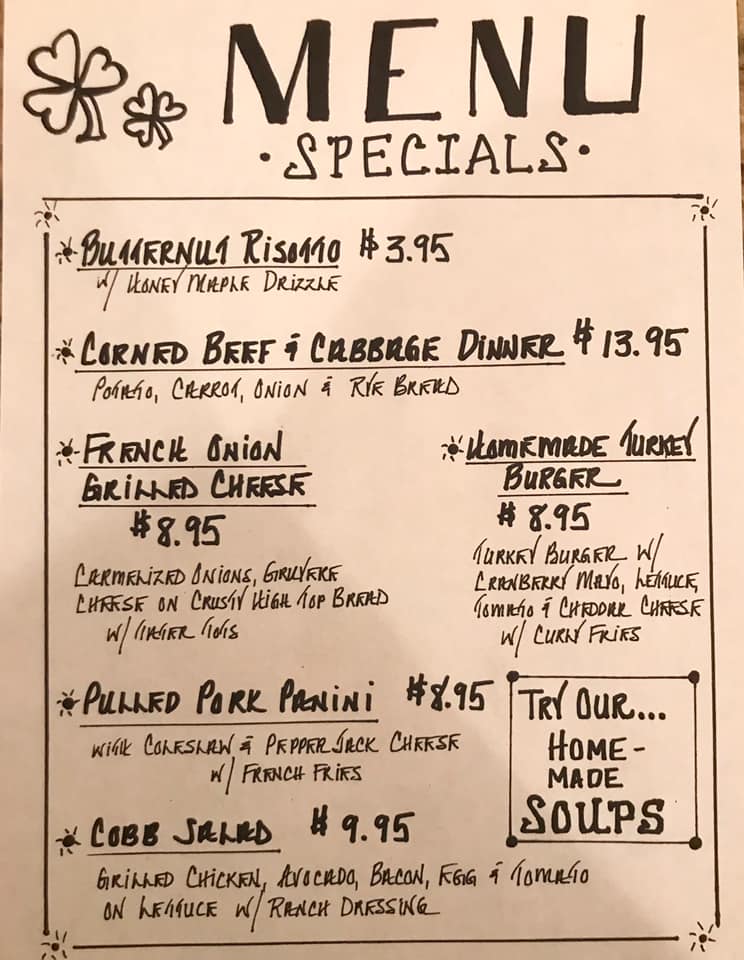 MENU
·SPECIALS·
BUTTERNUT RISOTTO $3.95
W/ HONEY MAPLE DRIZZLE
CORNED BEEF & CABBAGE DINNER $13.95
POTATO, CARROT, ONION & RYE BREAD
FRENCH ONION
GRILLED CHEESE
$8.95
CARMELIZED ONIONS, GRUYERE
CHEESE ON CRUSTY HIGH TOP BREAD
W/ TATER TOTS
HOMEMADE TURKEY
BURGER
$8.95
TURKEY BURGER W/
CRANBERRY MAYO, LETTUCE,
TOMATO & CHEDDAR CHEESE
W/ CURLY FRIES
PULLED PORK PANINI $8.95
WITH COLESLAW & PEPPER JACK CHEESE
W/ FRENCH FRIES
TRY OUR...
HOME-
MADE
SOUPS
COBB SALAD $9.95
GRILLED CHICKEN, AVOCADO, BACON, EGG & TOMATO
ON LETTUCE W/ RANCH DRESSING